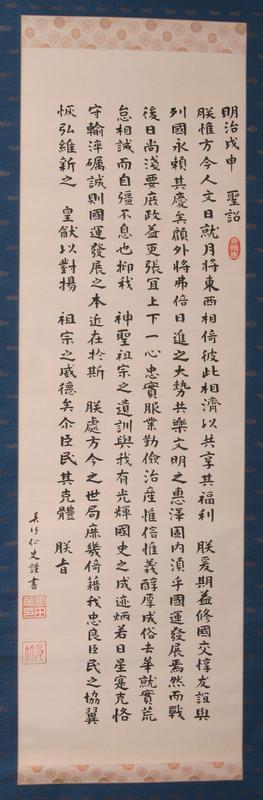 明治戊申　聖詔
朕惟方今人文日就月將東西相倚彼此相濟以共享其福利　朕爰期益修國交惇友誼與
列國永賴其慶矣顧外將弗倍日進之大勢共樂文明之惠澤固内須乎國運發展焉然而戰
後日尚淺要庶政益更張宜上下一心忠實服業勤儉治產惟信惟義醇厚成俗去華就實荒
怠相誡而自彊不息也抑我　神聖祖宗之遺訓與我有光輝國史之成迹炳若日星寔克恪
守輸淬礪誠則國運發展之本近在於斯　朕處方今之世局庶幾倚藉我忠良臣民之協翼
恢弘維新之　皇猷以對揚　祖宗之威德矣尒臣民其克體　朕旨
竹史謹書